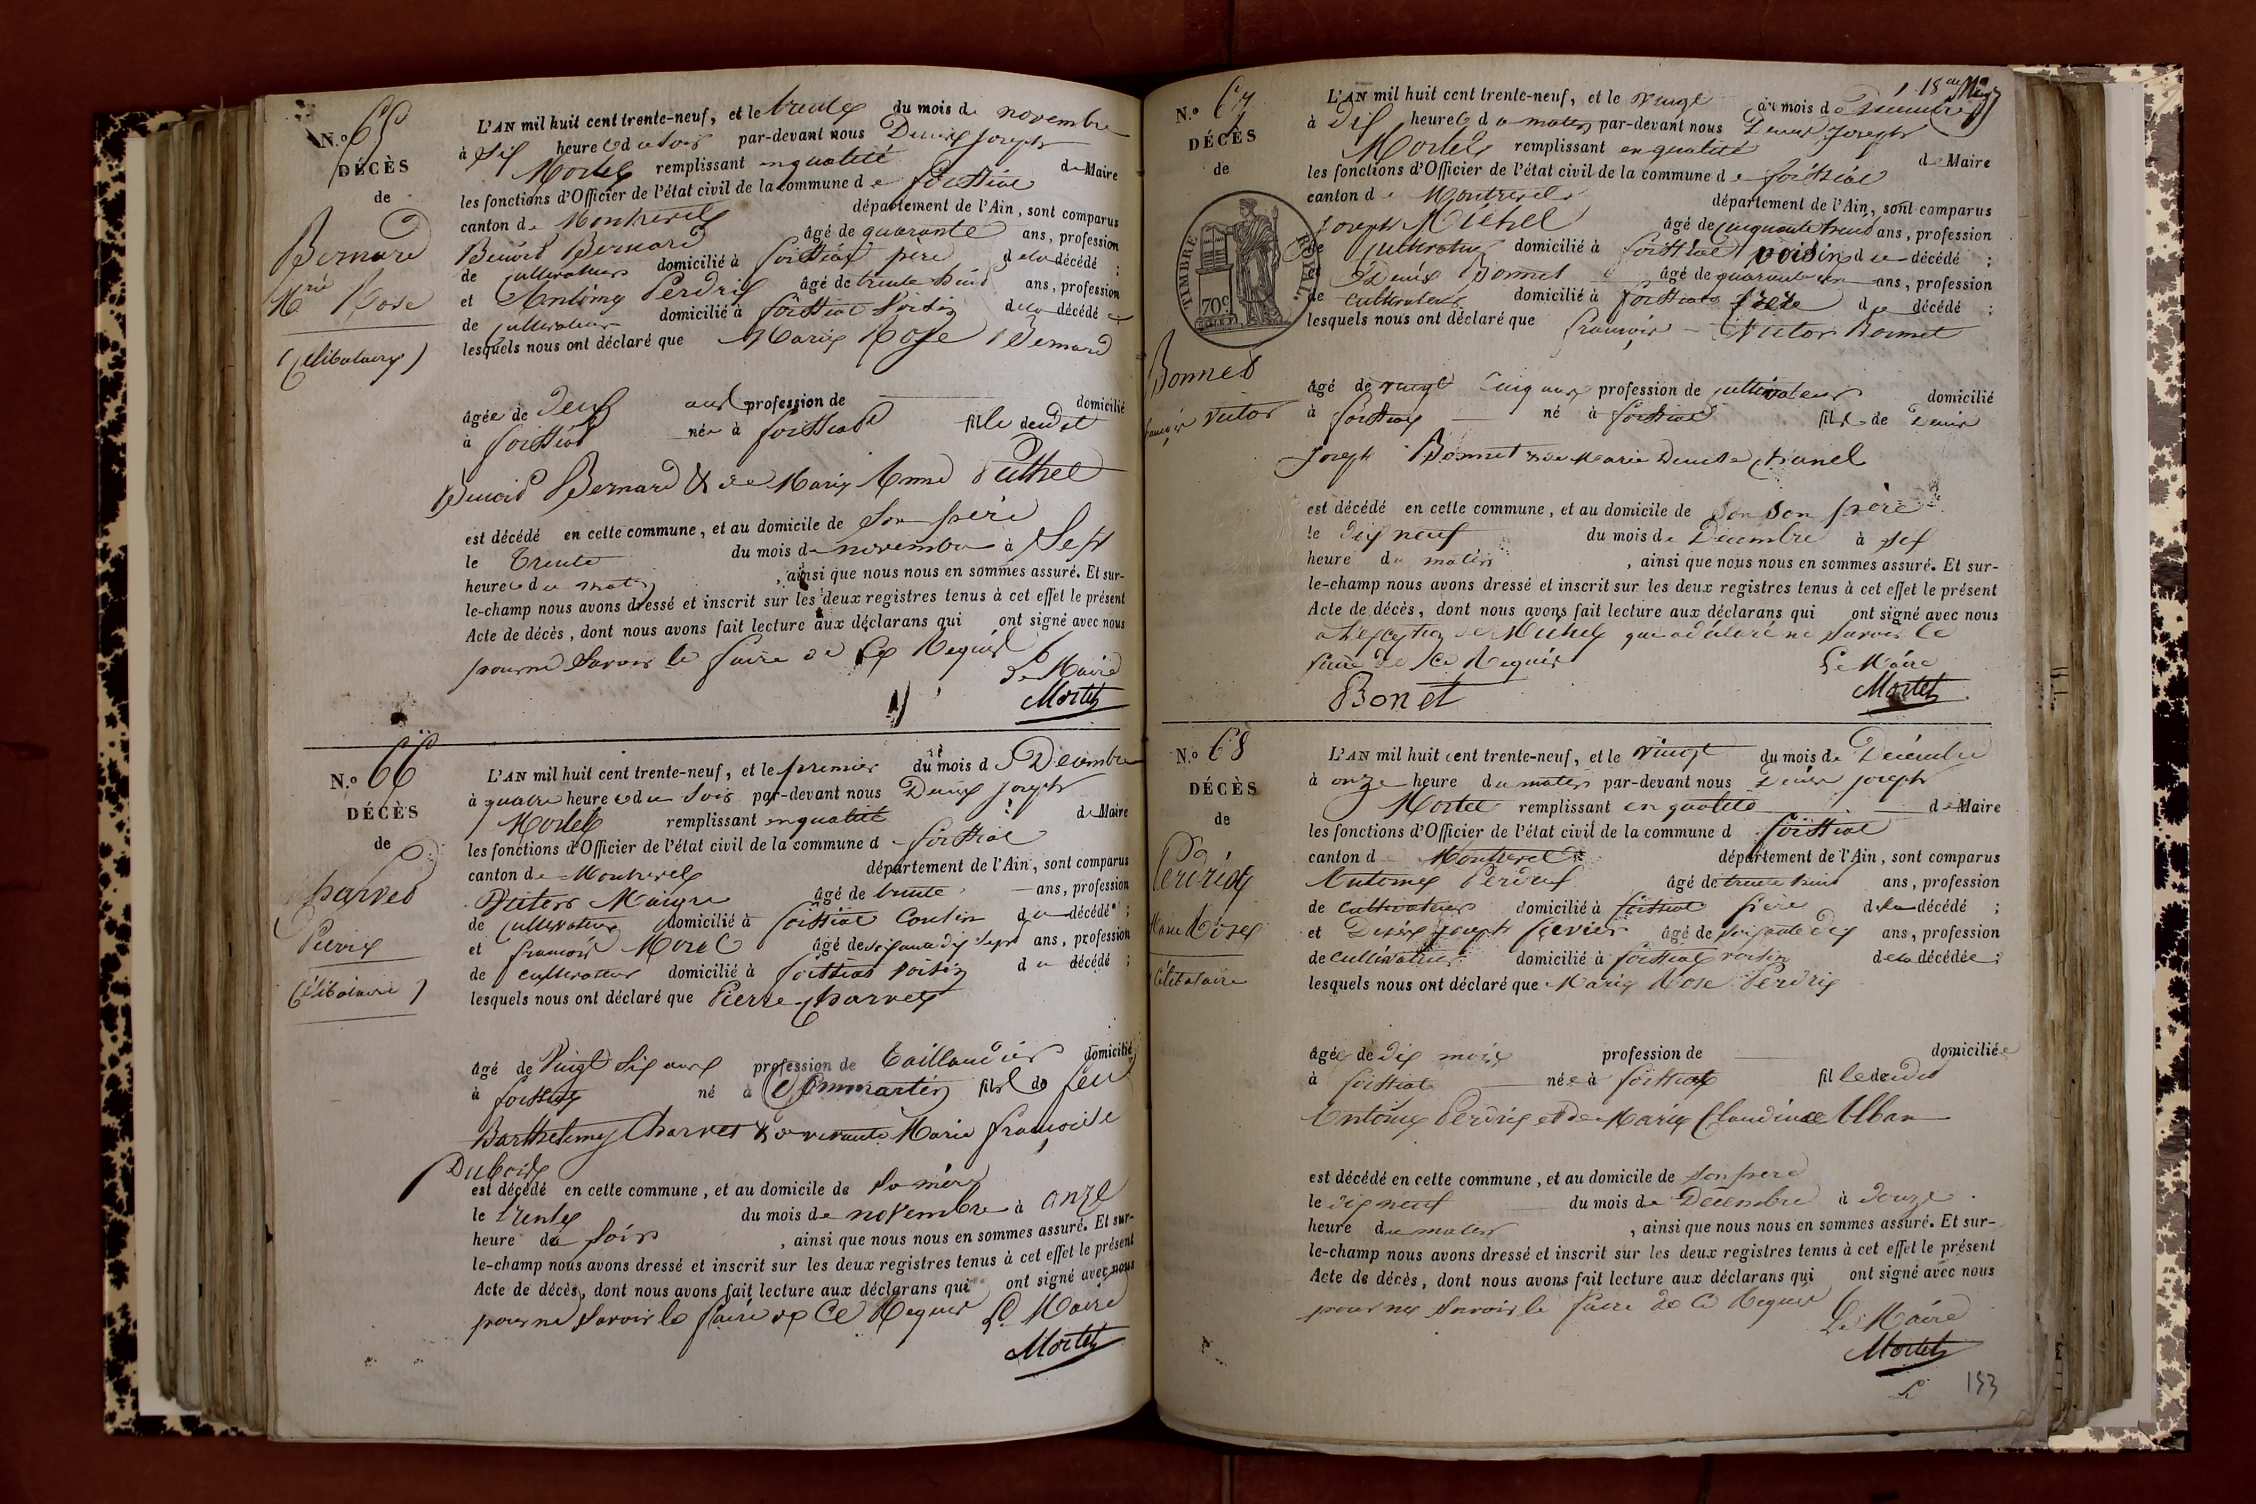 N.º 65
DÉCÈS
de
Bernard
M.rie Rose
(Célibataire)
L'AN mil huit cent trente-neuf, et le trente du mois de novembre
à Six heures du soir par-devant nous Denis Joseph
Mortel remplissant en qualité de Maire
les fonctions d'Officier de l'état civil de la commune de foissiat
canton de Montrevel département de l'Ain, sont comparus
Benoit Bernard âgé de quarante ans, profession
de cultivateur domicilié à foissiat père de la décédé ;
et Antoine Perdrix âgé de trente huit ans, profession
de cultivateur domicilié à foissiat voisin de la décédé e
lesquels nous ont déclaré que Marie Rose Bernard
âgée de deux ans profession de domicilié
à foissiat née à foissiat fille dudit
Benoit Bernard & de Marie Anne Puthet
est décédé en cette commune, et au domicile de Son père
le trente du mois de novembre à Sept
heures du matin, ainsi que nous nous en sommes assuré. Et sur-
le-champ nous avons dressé et inscrit sur les deux registres tenus à cet effet le présent
Acte de décès, dont nous avons fait lecture aux déclarans qui ont signé avec nous
pour ne Savoir le faire de ce Requis
Le Maire
Mortel
N.º 66
DÉCÈS
de
Charvet
Pierre
(Célibataire)
L'AN mil huit cent trente-neuf, et le premier du mois d Décembre
à quatre heures du Soir par-devant nous Denis Joseph
Mortel remplissant en qualité de Maire
les fonctions d'Officier de l'état civil de la commune d foissiat
canton de Montrevel département de l'Ain, sont comparus
Victor Maigre âgé de trente ans, profession
de cultivateur domicilié à foissiat Cousin du décédé ;
et françois Morel âgé de soixante dix sept ans, profession
de cultivateur domicilié à foissiat voisin du décédé ;
lesquels nous ont déclaré que Pierre Charvet
âgé de Vingt Six ans profession de taillandier domicilié
à foissiat né à Dommartin fils de feu
Barthelemy Charvet & de vivante Marie françoise
Dubois
est décédé en cette commune, et au domicile de Sa mère
le trente du mois de novembre à onze
heure du Soir, ainsi que nous nous en sommes assuré. Et sur-
le-champ nous avons dressé et inscrit sur les deux registres tenus à cet effet le présent
Acte de décès, dont nous avons fait lecture aux déclarans qui ont signé avec nous
pour ne Savoir le faire de ce Requis Le Maire
Mortel
N.º 67
DÉCÈS
de
TIMBRE ROYAL
70 c.
Bonnet
françois Victor
L'AN mil huit cent trente-neuf, et le vingt du mois de Décembre
à dix heures du matin par-devant nous Denis Joseph
Mortel remplissant en qualité de Maire
les fonctions d'Officier de l'état civil de la commune de foissiat
canton de Montrevel département de l'Ain, sont comparus
Joseph Michel âgé de cinquante trois ans, profession
de cultivateur domicilié à foissiat voisin du décédé ;
Denis Bonnet âgé de quarante un ans, profession
de cultivateur domicilié à foissiat frère du décédé ;
lesquels nous ont déclaré que françois Victor Bonnet
âgé de vingt cinq ans profession de cultivateur domicilié
à foissiat né à foissiat fils de Denis
Joseph Bonnet & de Marie Denise Chanel
est décédé en cette commune, et au domicile de Son Son frère
le dix neuf du mois de Décembre à Six
heure du matin, ainsi que nous nous en sommes assuré. Et sur-
le-champ nous avons dressé et inscrit sur les deux registres tenus à cet effet le présent
Acte de décès, dont nous avons fait lecture aux déclarans qui ont signé avec nous
à l'exception de Michel qui a déclaré ne Savoir le
faire de ce Requis Le Maire
Bonet Mortel
N.º 68
DÉCÈS
de
Perdrix
Marie Rose
Célibataire
L'AN mil huit cent trente-neuf, et le vingt du mois de Décembre
à onze heure du matin par-devant nous Denis Joseph
Mortel remplissant en qualité de Maire
les fonctions d'Officier de l'état civil de la commune d foissiat
canton d Montrevel département de l'Ain, sont comparus
Antoine Perdrix âgé de trente huit ans, profession
de cultivateur domicilié à foissiat père de la décédé ;
et Denis Joseph âgé de soixante dix ans, profession
de cultivateur domicilié à foissiat voisin de la décédée ;
lesquels nous ont déclaré que Marie Rose Perdrix
âgée de dix mois profession de domiciliée
à foissiat née à foissiat fille dudit
Antoine Perdrix et de Marie Claudine Alban
est décédé en cette commune, et au domicile de Son père
le dix neuf du mois de Décembre à douze
heure du matin, ainsi que nous nous en sommes assuré. Et sur-
le-champ nous avons dressé et inscrit sur les deux registres tenus à cet effet le présent
Acte de décès, dont nous avons fait lecture aux déclarans qui ont signé avec nous
pour ne Savoir le faire de ce Requis Le Maire
Mortel
153